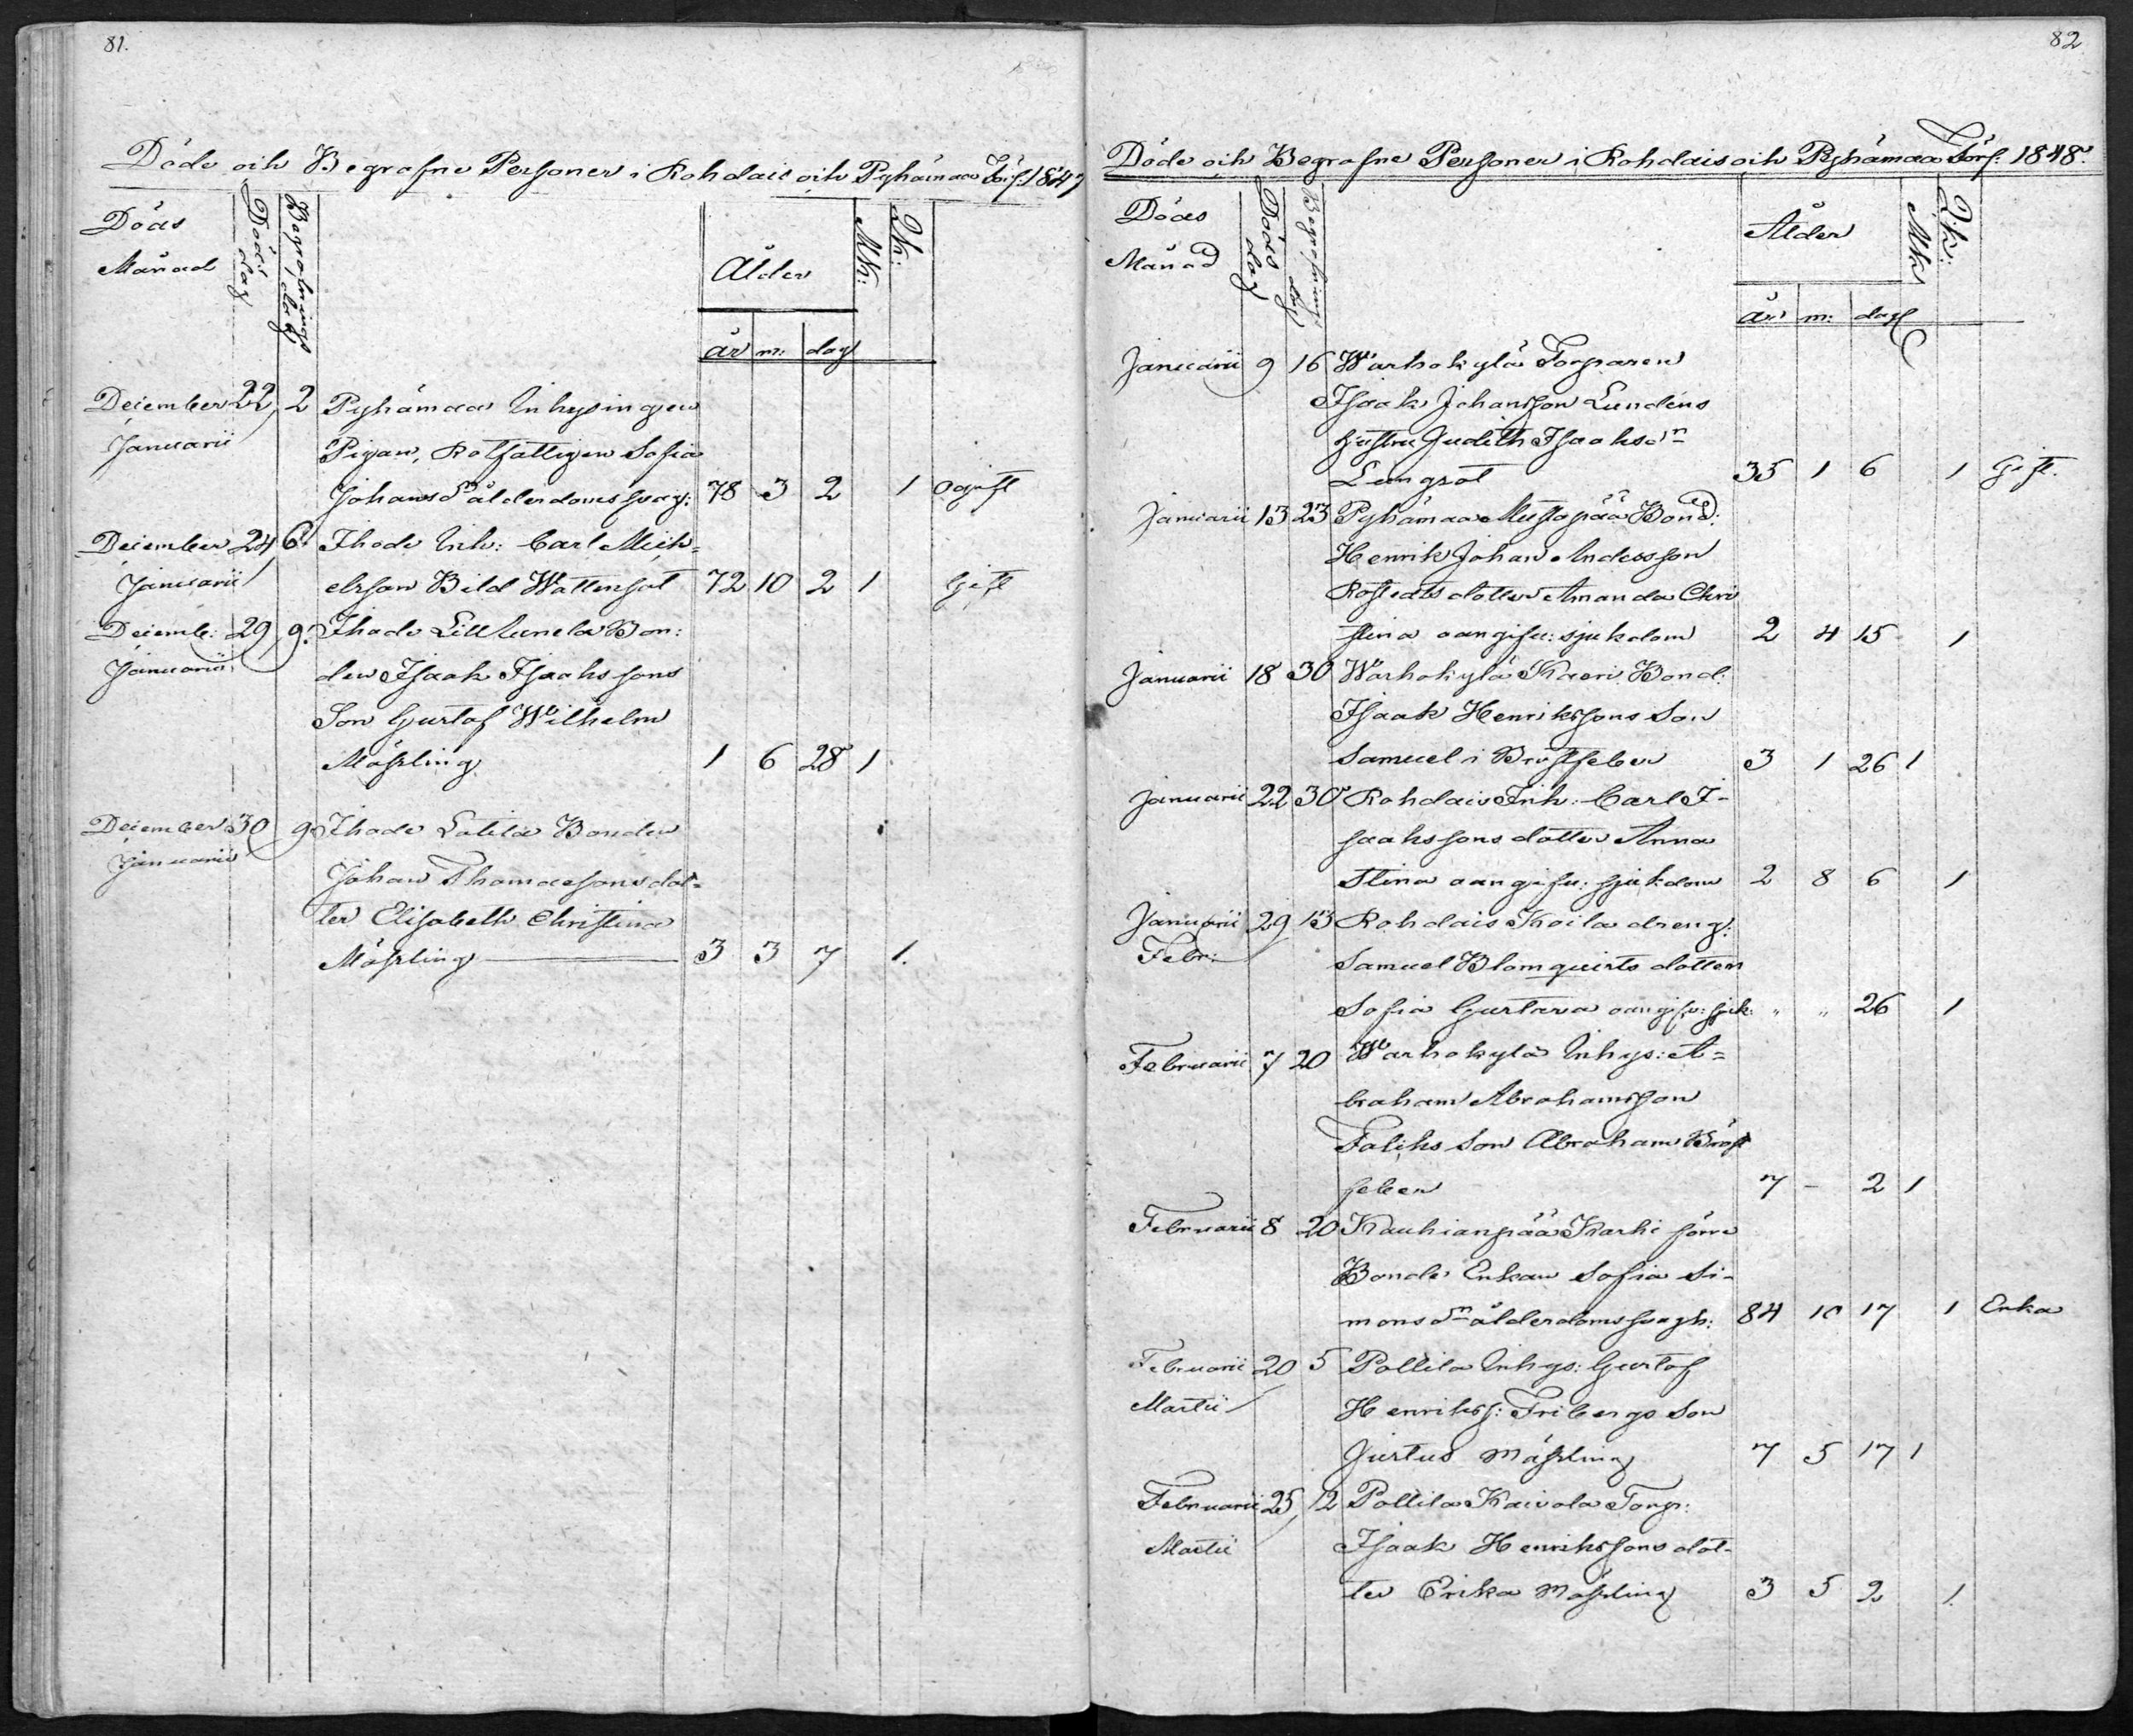 81.
Döde och Begrafne Personer i Rohdais och Pyhämaa Förs: 1847
Döds Månad
Döds dag
Begrafnings dag
Ålder
Mk:
Qk:
år m: dag
December 22 2 Pyhämaa Inhysingen
Januarii Pigan, Rotfattigen Sofia
Johansdn ålderdomssvag: 78 3 2 1 ogift
December 24 6 Ihode Inh: Carl Mich=
Januarii elsson Bild Wattensot 72 10 2 1 Gift
Decemb: 29 9. Ihode Lill Bon:
Januarii den Isaak Isaakssons
Son Gustaf Wilhelm
Mässling 1 6 28 1
December 30 9 Ihode Lotila Bonden
Januarii Johan Thomassons dot=
ter Elisabeth Christina
Mässling 3 3 7 1.
82
Döde och Begrafne Personer i Rohdais och Pyhämaa Förs: 1848.
Döds Månad
Döds dag
Begrafnings dag
Ålder
Mk
Qk:
år m: dag
Januarii 9 16 Warhokylä Torparen
Isaak Johansson Lundens
hustru Judith Isaaksdn
Lungsot 35 1 6 1 Gift.
Januarii 13 23 Pyhämaa Mustapää Bond:
Henrik Johan Andersson
Rostedts dotter Amanda Chri
stina oangifv: sjukdom 2 4 15 1
Januarii 18 30 Warhokylä Kaeri Bond:
Isaak Henrikssons Son
Samuel i Bröstfeber 3 1 26 1
Januarii 22 30 Rohdais Inh: Carl I-
saakssons dotter Anna
Stina oangifv: sjukdom 2 8 6 1
Januarii 29 13 Rohdais Koila dreng:
Febr: Samuel Blomquists dotter
Sofia Gustava oangifv: sjuk: " " 26 1
Februarii 7 20 Warhokylä Inhys: A=
braham Abrahamsson
Falcks Son Abraham Bröst
feber 7 - 2 1
Februarii 8 20 Kauhianpää Karhi förre
Bonde Enkan Sofia Si-
monsdn ålderdomssvagh: 84 10 17 1 Enka
Februarii 20 5 Pollila Inhys: Gustaf
Martii Henrikss: Fribergs Son
Justus Mässling 7 5 17 1
Februarii 25 12 Pollila Kaivola Torp:
Martii Isaak Henrikssons dot-
ter Erika Mässling 3 5 2 1.